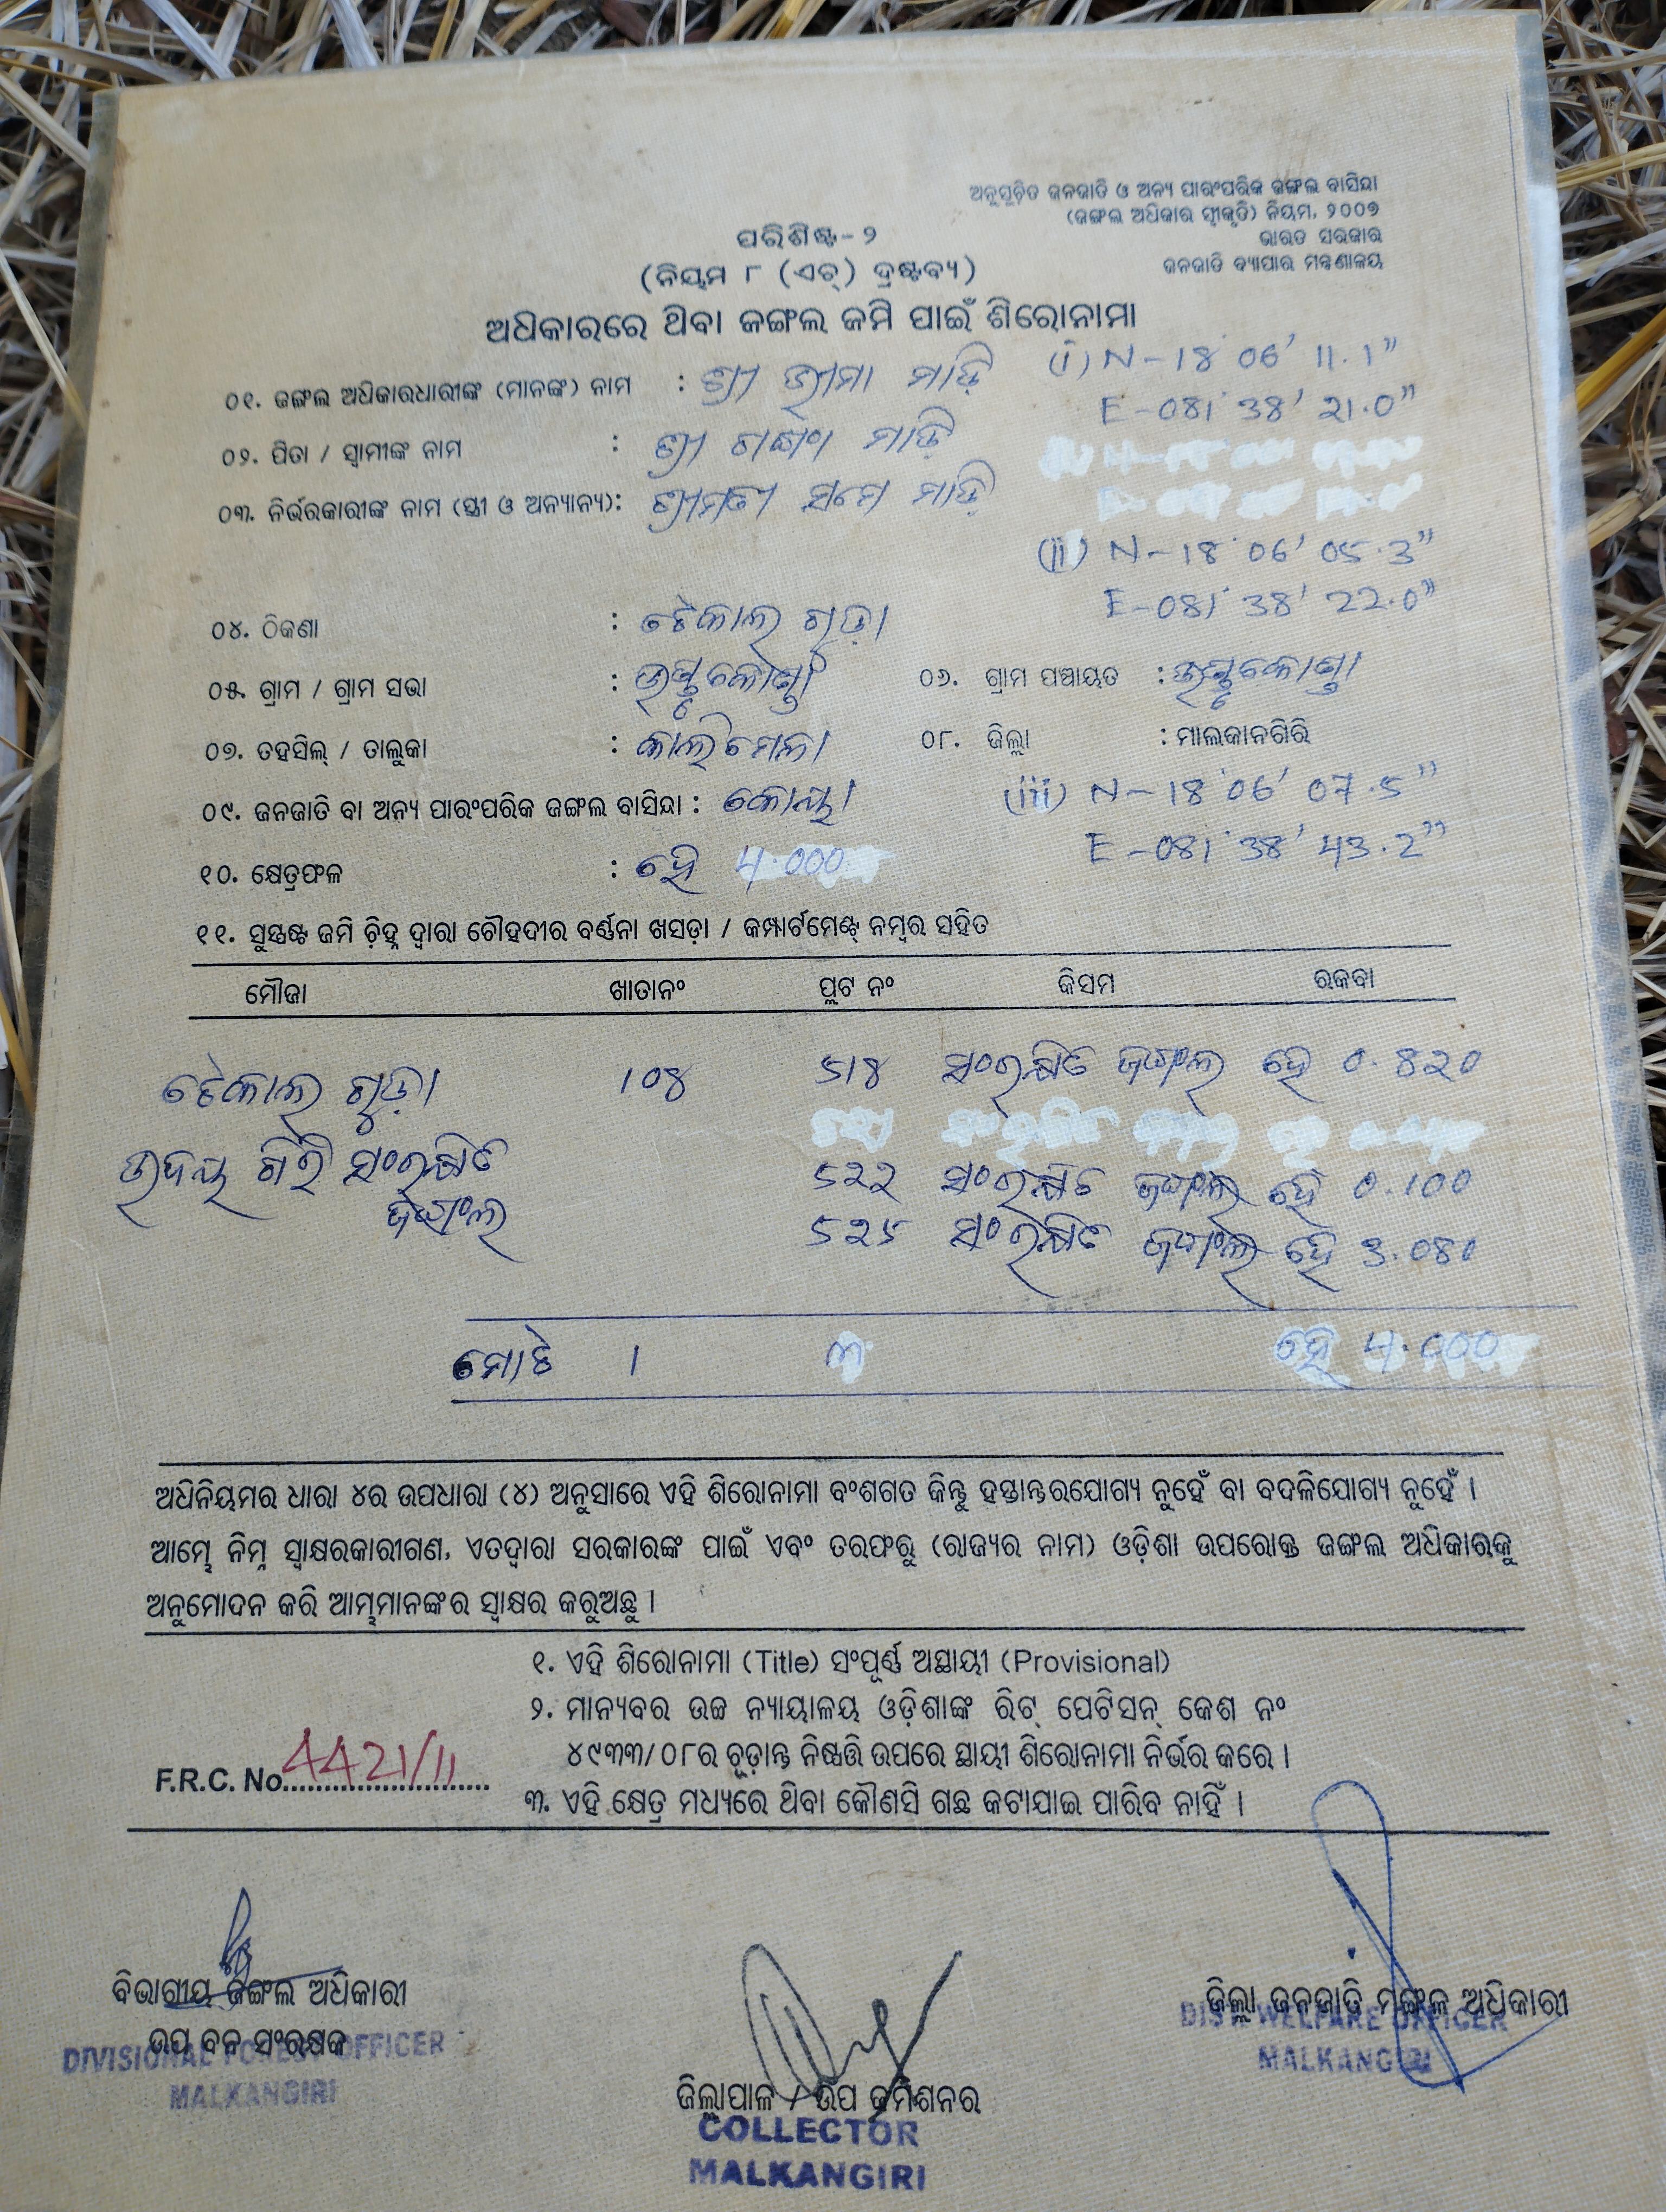 ଅନୁସୂଚିତ ଜନଜାତି ଓ ଅନ୍ୟ ପାରଂପରିକ ଜଙ୍ଗଲ ବାସିନ୍ଦା
(ଜଙ୍ଗଲ ଅଧିକାର ସ୍ୱୀକୃତି) ନିୟମ, ୨୦୦୭
ଭାରତ ସରକାର
ଜନଜାତି ବ୍ୟାପାର ମନ୍ତ୍ରଣାଳୟ
ପରିଶିଷ୍ଟ-୨
(ନିୟମ ୮ (ଏଚ୍) ଦ୍ରଷ୍ଟବ୍ୟ)
ଅଧିକାରରେ ଥିବା ଜଙ୍ଗଲ ଜମି ପାଇଁ ଶିରୋନାମା
(i) N-18° 06' 11.1"
୦୧. ଜଙ୍ଗଲ ଅଧିକାରଧାରୀଙ୍କ (ମାନଙ୍କ) ନାମ : ଶ୍ରୀ ଭୀମା ମାଡ଼ି
E-081° 38' 21.0"
୦୨. ପିତା / ସ୍ୱାମୀଙ୍କ ନାମ : ଶ୍ରୀ ମାଡ଼ି
୦୩. ନିର୍ଭରକାରୀଙ୍କ ନାମ (ସ୍ତ୍ରୀ ଓ ଅନ୍ୟାନ୍ୟ): ଶ୍ରୀମତୀ ସମେ ମାଡ଼ି
(ii) N-18° 06' 05.3"
E-081° 38' 22.0"
୦୪. ଠିକଣା : ଟେକାଲ ଗୁଡ଼ା
୦୫. ଗ୍ରାମ / ଗ୍ରାମ ସଭା : ୦୬. ଗ୍ରାମ ପଞ୍ଚାୟତ :
୦୭. ତହସିଲ୍ / ତାଲୁକା : କାଲିମେଳା ୦୮. ଜିଲ୍ଲା : ମାଲକାନଗିରି
(iii) N-18° 06' 07.5"
୦୯. ଜନଜାତି ବା ଅନ୍ୟ ପାରଂପରିକ ଜଙ୍ଗଲ ବାସିନ୍ଦା : କୋୟା
E-081° 38' 43.2"
୧୦. କ୍ଷେତ୍ରଫଳ : ହେ 4.000
୧୧. ସୁସ୍ପଷ୍ଟ ଜମି ଚିହ୍ନ ଦ୍ୱାରା ଚୌହଦୀର ବର୍ଣ୍ଣନା ଖସଡ଼ା / କମ୍ପାର୍ଟମେଣ୍ଟ୍ ନମ୍ବର ସହିତ
ମୌଜା ଖାତାନଂ ପ୍ଲଟ ନଂ କିସମ ରକବା
ଟେକାଲ ଗୁଡ଼ା 108 518 ସଂରକ୍ଷିତ ଜଙ୍ଗଲ ହେ 0.820
ଉଦୟ ଗିରି ସଂରକ୍ଷିତ 522 ସଂରକ୍ଷିତ ଜଙ୍ଗଲ ହେ 0.100
ଜଙ୍ଗଲ 525 ସଂରକ୍ଷିତ ଜଙ୍ଗଲ ହେ 3.080
ମୋଟ 1 ୩ ହେ 4.000
ଅଧିନିୟମର ଧାରା ୪ର ଉପଧାରା (୪) ଅନୁସାରେ ଏହି ଶିରୋନାମା ବଂଶଗତ କିନ୍ତୁ ହସ୍ତାନ୍ତରଯୋଗ୍ୟ ନୁହେଁ ବା ବଦଳିଯୋଗ୍ୟ ନୁହେଁ ।
ଆମ୍ଭେ ନିମ୍ନ ସ୍ୱାକ୍ଷରକାରୀଗଣ, ଏତଦ୍ୱାରା ସରକାରଙ୍କ ପାଇଁ ଏବଂ ତରଫରୁ (ରାଜ୍ୟର ନାମ) ଓଡ଼ିଶା ଉପରୋକ୍ତ ଜଙ୍ଗଲ ଅଧିକାରକୁ
ଅନୁମୋଦନ କରି ଆମ୍ଭମାନଙ୍କର ସ୍ୱାକ୍ଷର କରୁଅଛୁ ।
୧. ଏହି ଶିରୋନାମା (Title) ସଂପୂର୍ଣ୍ଣ ଅସ୍ଥାୟୀ (Provisional)
୨. ମାନ୍ୟବର ଉଚ୍ଚ ନ୍ୟାୟାଳୟ ଓଡ଼ିଶାଙ୍କ ରିଟ୍ ପେଟିସନ୍ କେଶ ନଂ
୪୯୩୩/୦୮ର ଚୂଡ଼ାନ୍ତ ନିଷ୍ପତ୍ତି ଉପରେ ସ୍ଥାୟୀ ଶିରୋନାମା ନିର୍ଭର କରେ ।
F.R.C. No. 4421/11
୩. ଏହି କ୍ଷେତ୍ର ମଧ୍ୟରେ ଥିବା କୌଣସି ଗଛ କଟାଯାଇ ପାରିବ ନାହିଁ ।
ବିଭାଗୀୟ ଜଙ୍ଗଲ ଅଧିକାରୀ
ଉପ ବନ ସଂରକ୍ଷକ
DIVISIONAL FOREST OFFICER
MALKANGIRI
ଜିଲ୍ଲାପାଳ / ଉପ କମିଶନର
COLLECTOR
MALKANGIRI
ଜିଲ୍ଲା ଜନଜାତି ମଙ୍ଗଳ ଅଧିକାରୀ
DIST. WELFARE OFFICER
MALKANGIRI